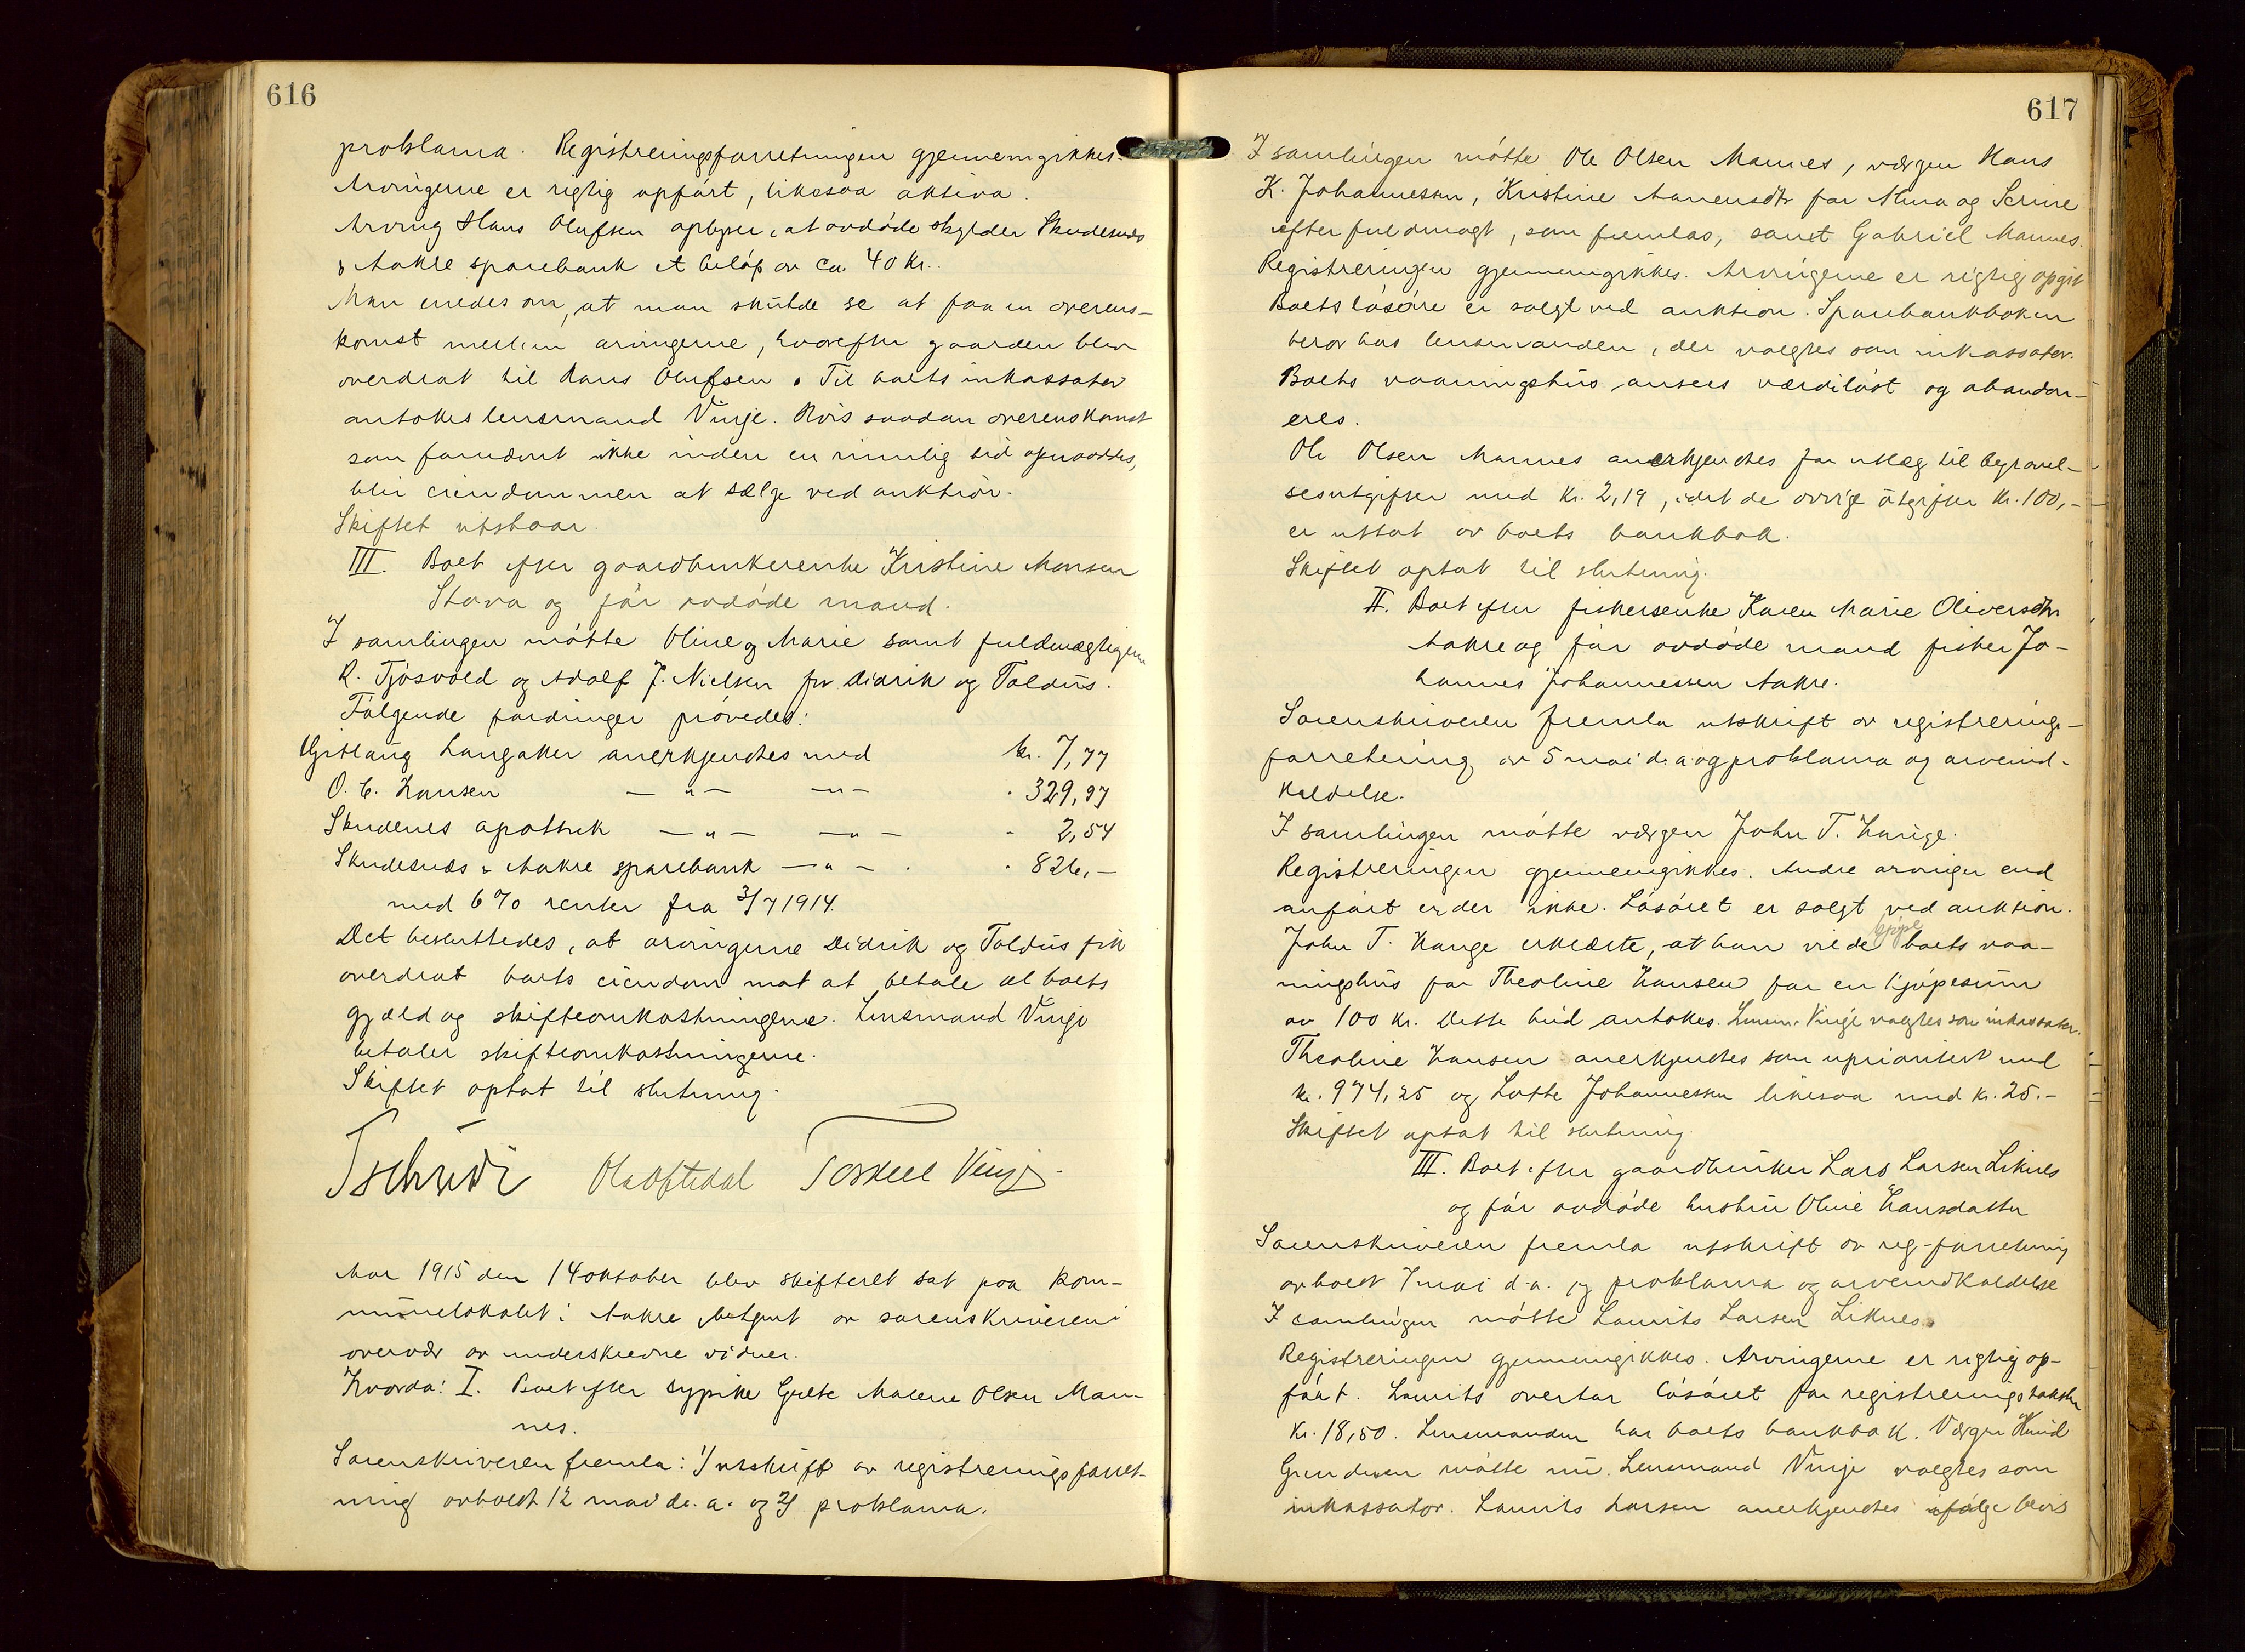 616
proklama. Registreringsforretningen gjennemgikkes.
Arvingerne er rigtig opført, likesaa aktiva.
Arving Hans Olufsen oplyser, at avdøde skylder Skudesnes
& Aakre sparebank et beløp av ca. 40 kr..
Man enedes om, at man skulde se at faa en overens-
komst mellem arvingerne, hvorefter gaarden blev
overdrat til Hans Olufsen. Til boets inkassator
antokes lensmand Vinje. Hvis saadan overenskomst
som fornævnt ikke inden en rimelig tid opnaaddes,
blir eiendommen at sælge ved auktion.
Skiftet utstaar.
III. Boet efter gaardbrukerenke Kristine Monsen
Stava og før avdøde mand.
I samlingen møtte Oline og Marie samt fuldmægtigene
R. Tjøsvold og Adolf J. Nielsen for Didrik og Toldus.
Følgende fordringer prøvedes:
Gitlaug Langaker anerkjendtes med kr. 7,77
O. C. Hansen — " — — " — . 329,97
Skudenes apothek — " — — " — - 2,54
Skudesnæs & Aakre sparebank — " — . . 826,—
med 6 % renter fra 3/7 1914.
Det besluttedes, at arvingerne Didrik og Toldus fik
overdrat boets eiendom mot at betale al boets
gjæld og skifteomkostningerne. Lensmand Vinje
betaler skifteomkostningerne.
Skiftet optat til slutning.
Torkell Vinje.
Aar 1915 den 14 oktober blev skifteret sat paa kom-
munelokalet i Aakre, betjent av sorenskriveren i
overvær av underskrevne vidner.
Hvorda: I. Boet efter sypike Grete Malene Olsen Man-
nes.
Sorenskriveren fremla: 1/ utskrift av registreringsforret-
ning avholdt 12 mai d. a. og 2/ proklama.
617
I samlingen møtte Ole Olsen Mannes, værgen Hans
K. Johannessen, Kristine Aanensdtr for Alma og Serine
efter fuldmagt, som fremlas, samt Gabriel Mannes.
Registreringen gjennemgikkes. Arvingerne er rigtig opgit
Boets løsøre er solgt ved auktion. Sparebankboken
beror hos lensmanden, der valgtes som inkassator.
Boets vaaningshus ansees værdiløst og abandon-
eres.
Ole Olsen Mannes anerkjendtes for utlæg til begravel-
sesutgifter med kr. 2,19, idet de øvrige utgifter kr. 100,-
er uttat av boets bankbok.
Skiftet optat til slutning.
II. Boet efter fiskerenke Karen Marie Oliversdtr
Aakre og før avdøde mand fisker Jo-
hannes Johannessen Aakre.
Sorenskriveren fremla utskrift av registrerings-
forretning av 5 mai d. a. og proklama og arveind-
kaldelse.
I samlingen møtte værgen John T. Hauge.
Registreringen gjennemgikkes. Andre arvinger end
anført er der ikke. Løsøret er solgt ved auktion.
John T. Hauge erklærte, at han vilde kjøpe boets vaa-
ningshus for Theoline Hansen for en kjøpesum
av 100 kr. Dette bud antokes. Lensm. Vinje valgtes som inkassator.
Theoline Hansen anerkjendtes som uprioritert med
kr. 974,25 og Lotte Johannessen likesaa med kr. 25.-
Skiftet optat til slutning.
III. Boet efter gaardbruker Lars Larsen Liknes
og før avdøde hustru Oline Hansdatter
Sorenskriveren fremla utskrift av reg-forretning
avholdt 7 mai d. a. og proklama og arveindkaldelse
I samlingen møtte Laurits Larsen Liknes.
Registreringen gjennemgikkes. Arvingerne er rigtig op-
ført. Laurits overtar løsøret for registreringstaksten
kr. 18,50. Lensmanden har boets bankbok. Værgen
møtte nu. Lensmand Vinje valgtes som
inkassator. Laurits Larsen anerkjendtes ifølge bevis